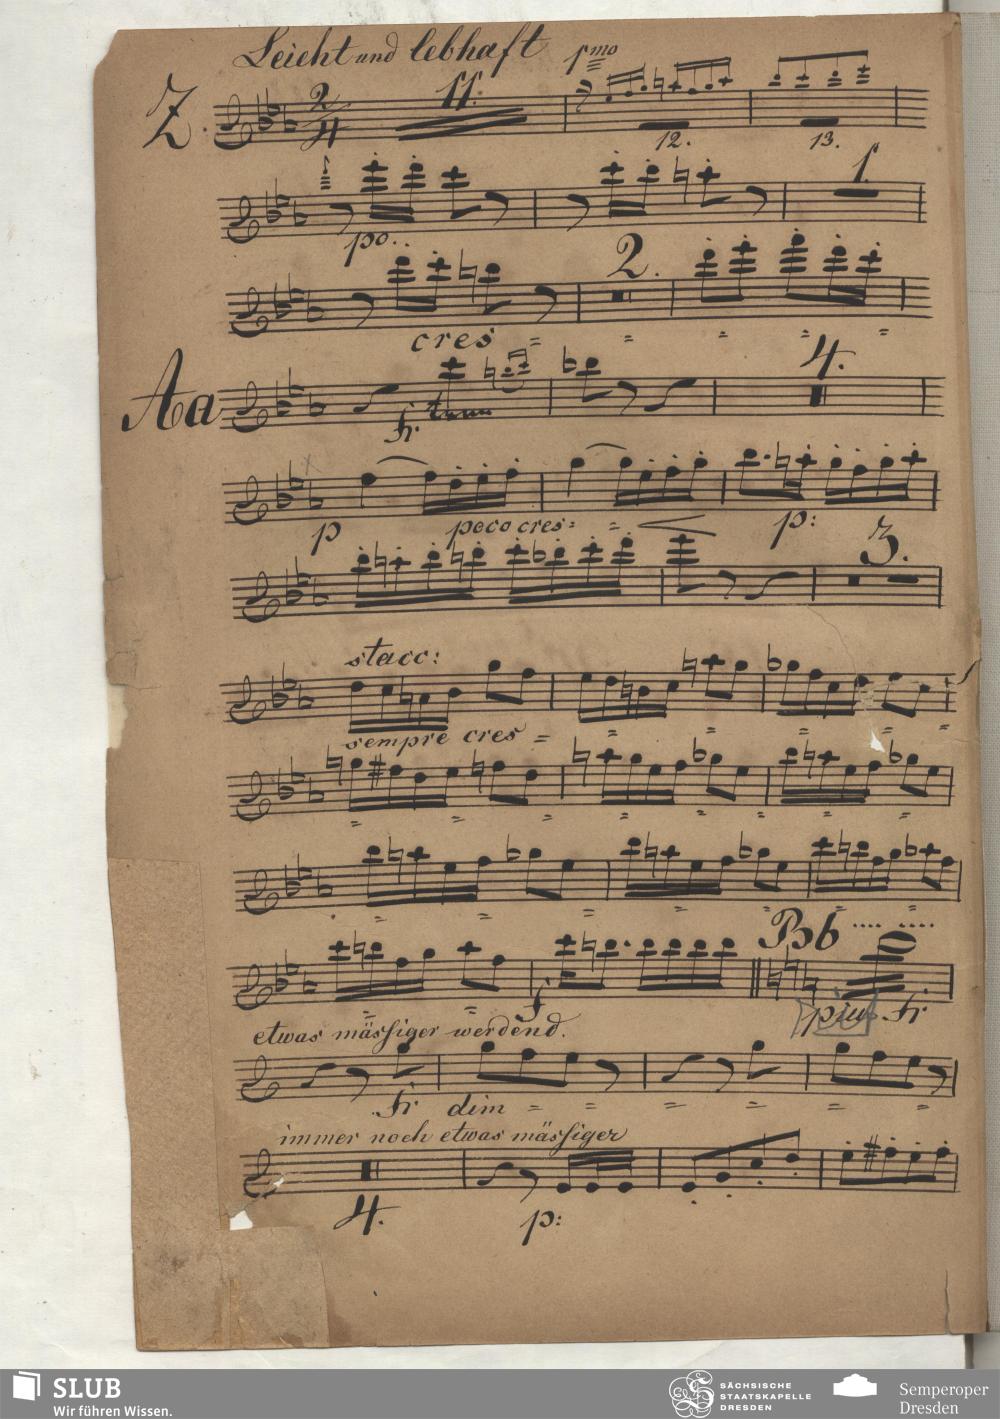 Leicht und lebhaft
pmo
Z.
2/4
11.
12.
13.
po..
1.
cres = = = = =
2.
Aa
fr.
4.
p
poco cres = =
p:
3.
stacc:
sempre cres = = = =
= = = = = =
= = = = =
= = f
Bb
più fr
etwas mässiger werdend.
fr dim = = = = = =
immer noch etwas mässiger
4.
p:
SLUB
Wir führen Wissen.
SÄCHSISCHE
STAATSKAPELLE
DRESDEN
Semperoper
Dresden